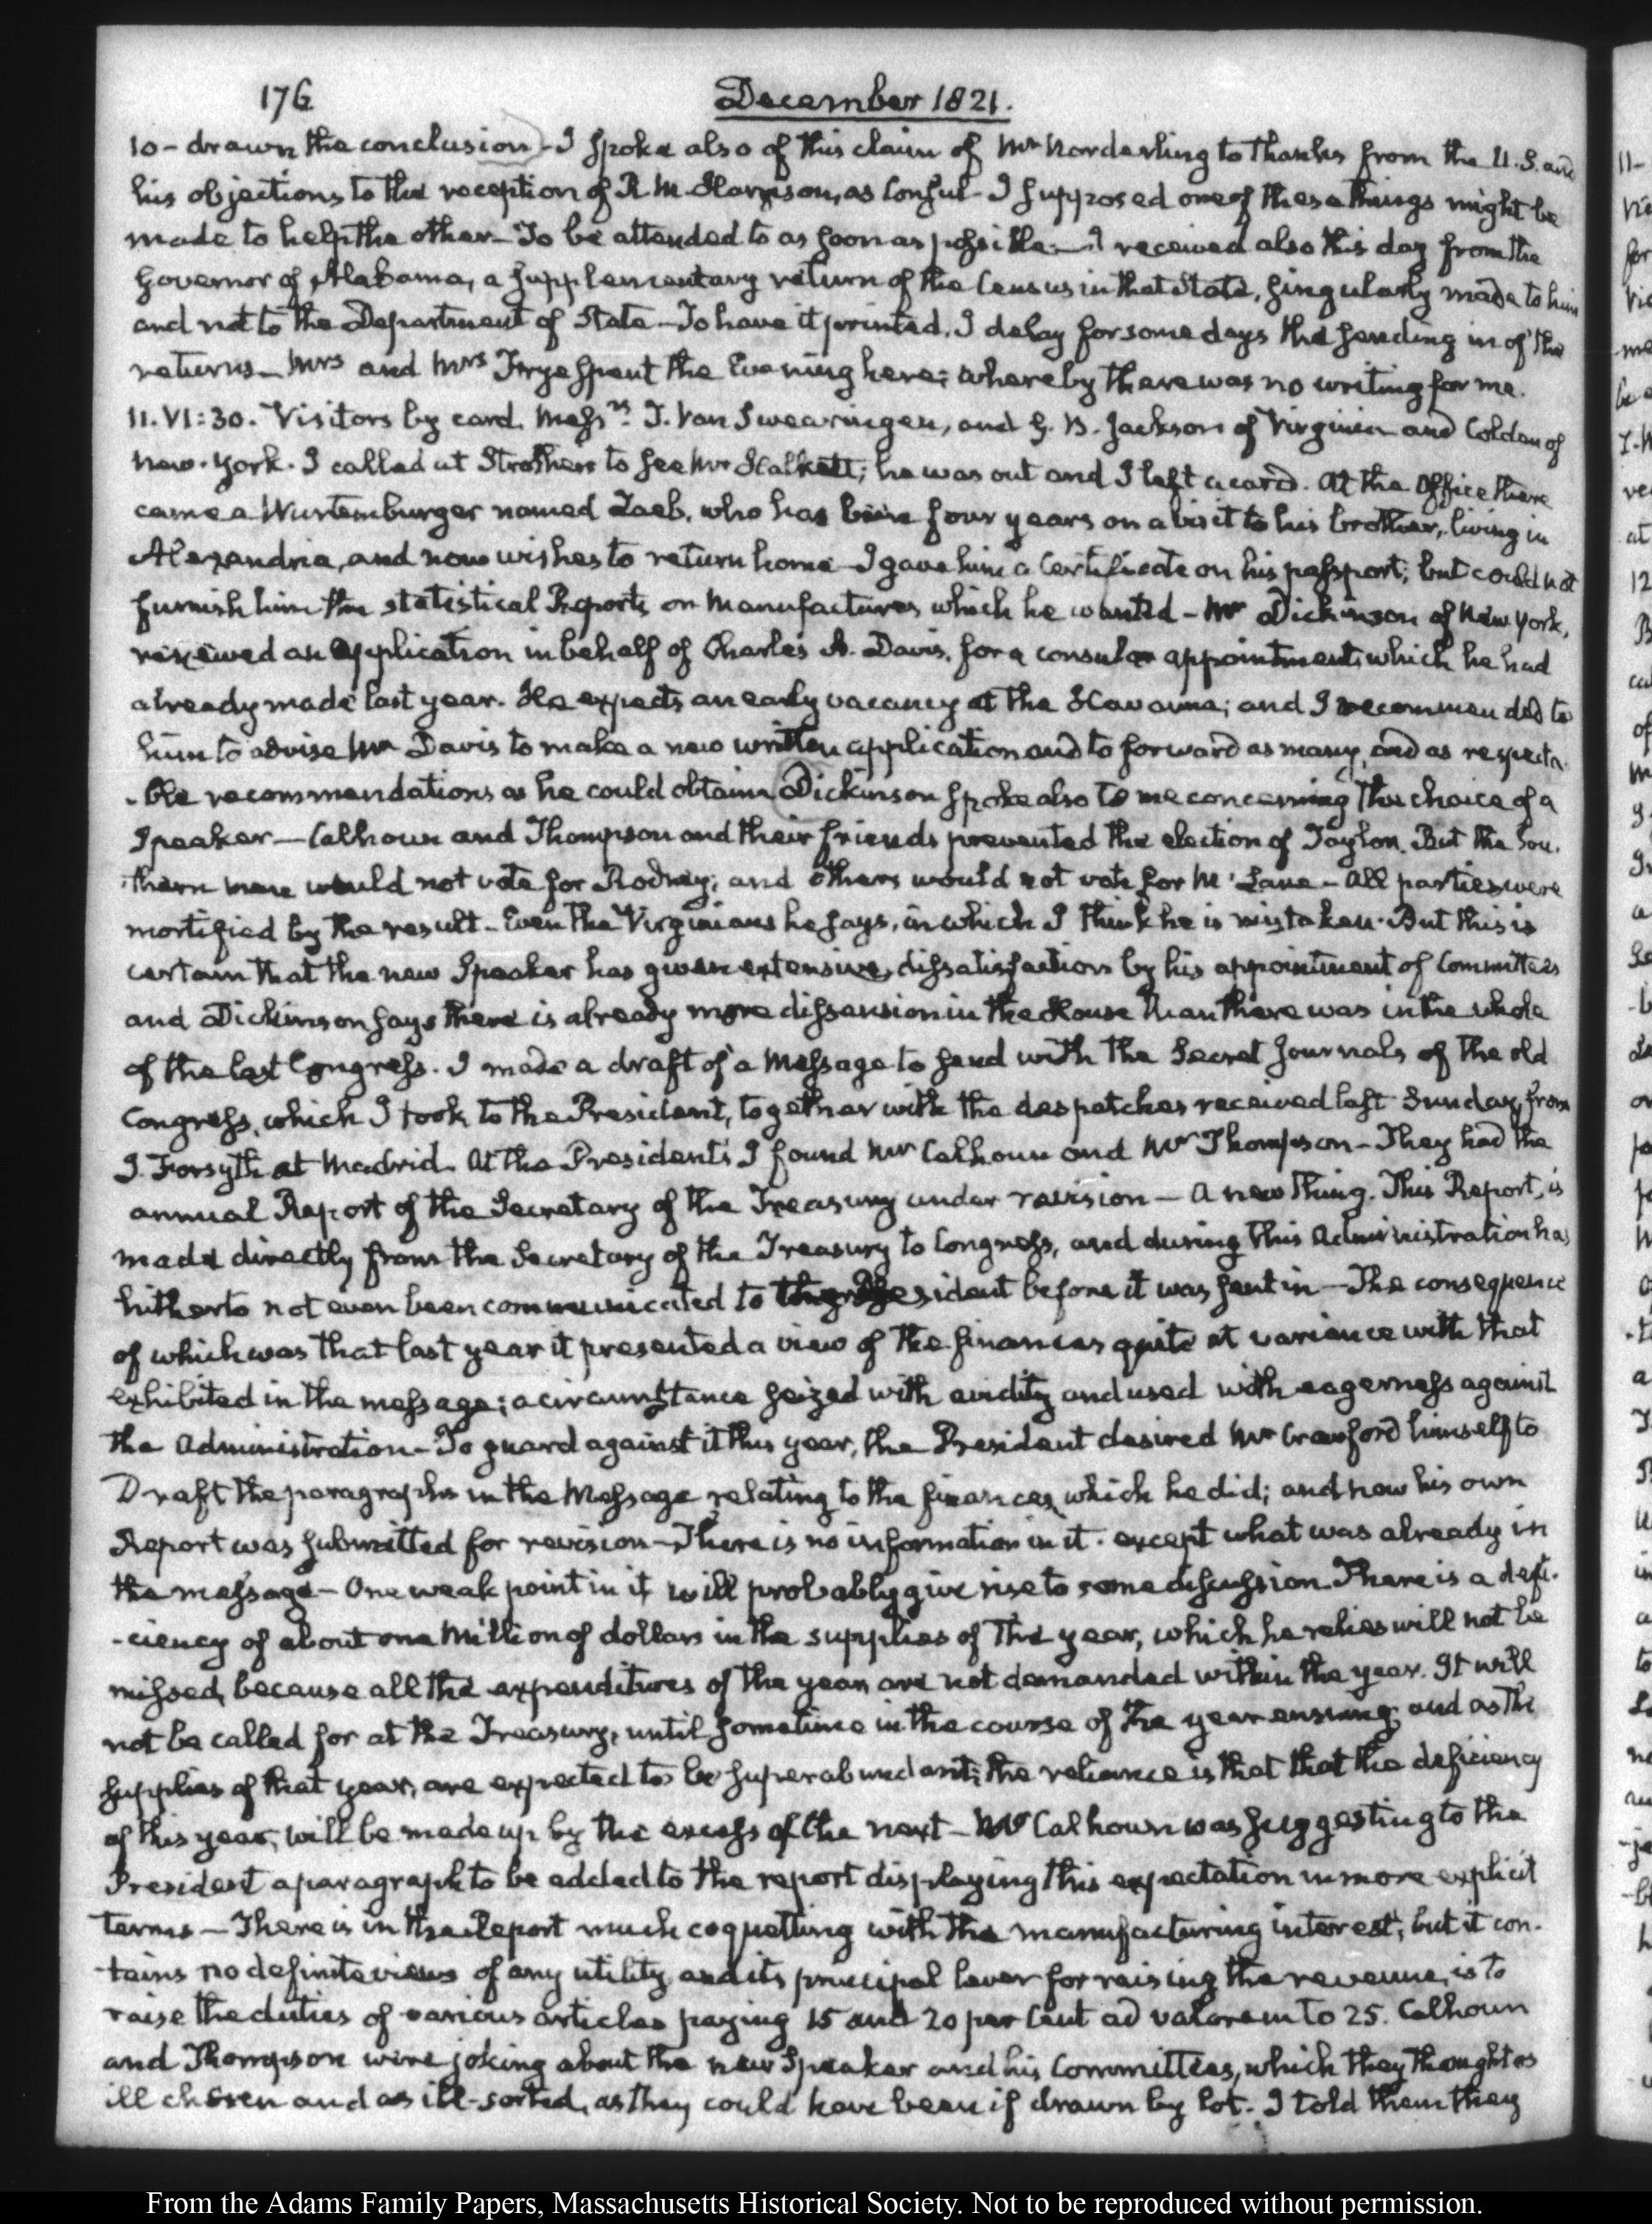 176
December 1821.
10 - drawn the conclusion - I spoke also of this claim of Mr Norderling to thanks from the U.S. and
his objections to the reception of R. M. Harrison, as Consul - I supposed one of these things might be
made to help the other - To be attended to as soon as possible. - I received also this day from the
Governor of Alabama, a supplementary return of the Census in that State, singularly made to him
and not to the Department of State - To have it printed. I delay for some days the sending in of the
returns - Mrs and Mrs Frye spent the Evening here; whereby there was no writing for me.
11. VI:30. Visitors by card. Messrs. T. Van Swearingen, and G. B. Jackson of Virginia and Colden of
New-York. I called at Strother's to see Mr Halkett; he was out and I left a card. At the Office there
came a Wurtemburger named Zaeb, who has been four years on a visit to his brother, living in
Alexandria, and now wishes to return home - I gave him a Certificate on his passport; but could not
furnish him the statistical Reports on Manufactures which he wanted - Mr Dickinson of New York,
renewed an application in behalf of Charles A. Davis, for a consular appointment, which he had
already made last year. He expects an early vacancy at the Havanna; and I recommended to
him to advise Mr Davis to make a new written application and to forward as many, and as respecta-
-ble recommendations as he could obtain. Dickinson spoke also to me concerning the choice of a
Speaker - Calhoun and Thompson and their friends prevented the election of Taylor. But the Sou-
thern men would not vote for Rodney; and others would not vote for McLane - All parties were
mortified by the result - Even the Virginians he says, in which I think he is mistaken. But this is
certain that the new Speaker has given extensive dissatisfaction by his appointment of Committees
and Dickinson says there is already more dissension in the House than there was in the whole
of the last Congress. I made a draft of a Message to send with the Secret Journals of the old
Congress, which I took to the President, together with the despatches received last Sunday, from
J. Forsyth at Madrid. At the President's I found Mr Calhoun and Mr Thompson - They had the
annual Report of the Secretary of the Treasury under revision - A new thing. This Report, is
made directly from the Secretary of the Treasury to Congress, and during this Administration has
hitherto not even been communicated to the President before it was sent in - The consequence
of which was that last year it presented a view of the finances quite at variance with that
exhibited in the message; a circumstance seized with avidity and used with eagerness against
the Administration - To guard against it this year, the President desired Mr Crawford himself to
Draft the paragraphs in the Message relating to the finances, which he did; and now his own
Report was submitted for revision - There is no information in it. except what was already in
the message - One weak point in it will probably give rise to some discussion. There is a defi-
-ciency of about one Million of dollars in the supplies of the year, which he relies will not be
missed, because all the expenditures of the year are not demanded within the year. It will
not be called for at the Treasury, until sometime in the course of the year ensuing; and as the
supplies of that year, are expected to be superabundant; the reliance is that that the deficiency
of this year, will be made up by the excess of the next - Mr Calhoun was suggesting to the
President a paragraph to be added to the report displaying this expectation in more explicit
terms - There is in the Report much coquetting with the manufacturing interest; but it con-
-tains no definite views of any utility, and its principal lever for raising the revenue, is to
raise the duties of various articles paying 15 and 20 per Cent ad valorem to 25. Calhoun
and Thompson were joking about the new Speaker and his Committees, which they thought as
ill chosen and as ill-sorted, as they could have been if drawn by lot. I told them they
From the Adams Family Papers, Massachusetts Historical Society. Not to be reproduced without permission.